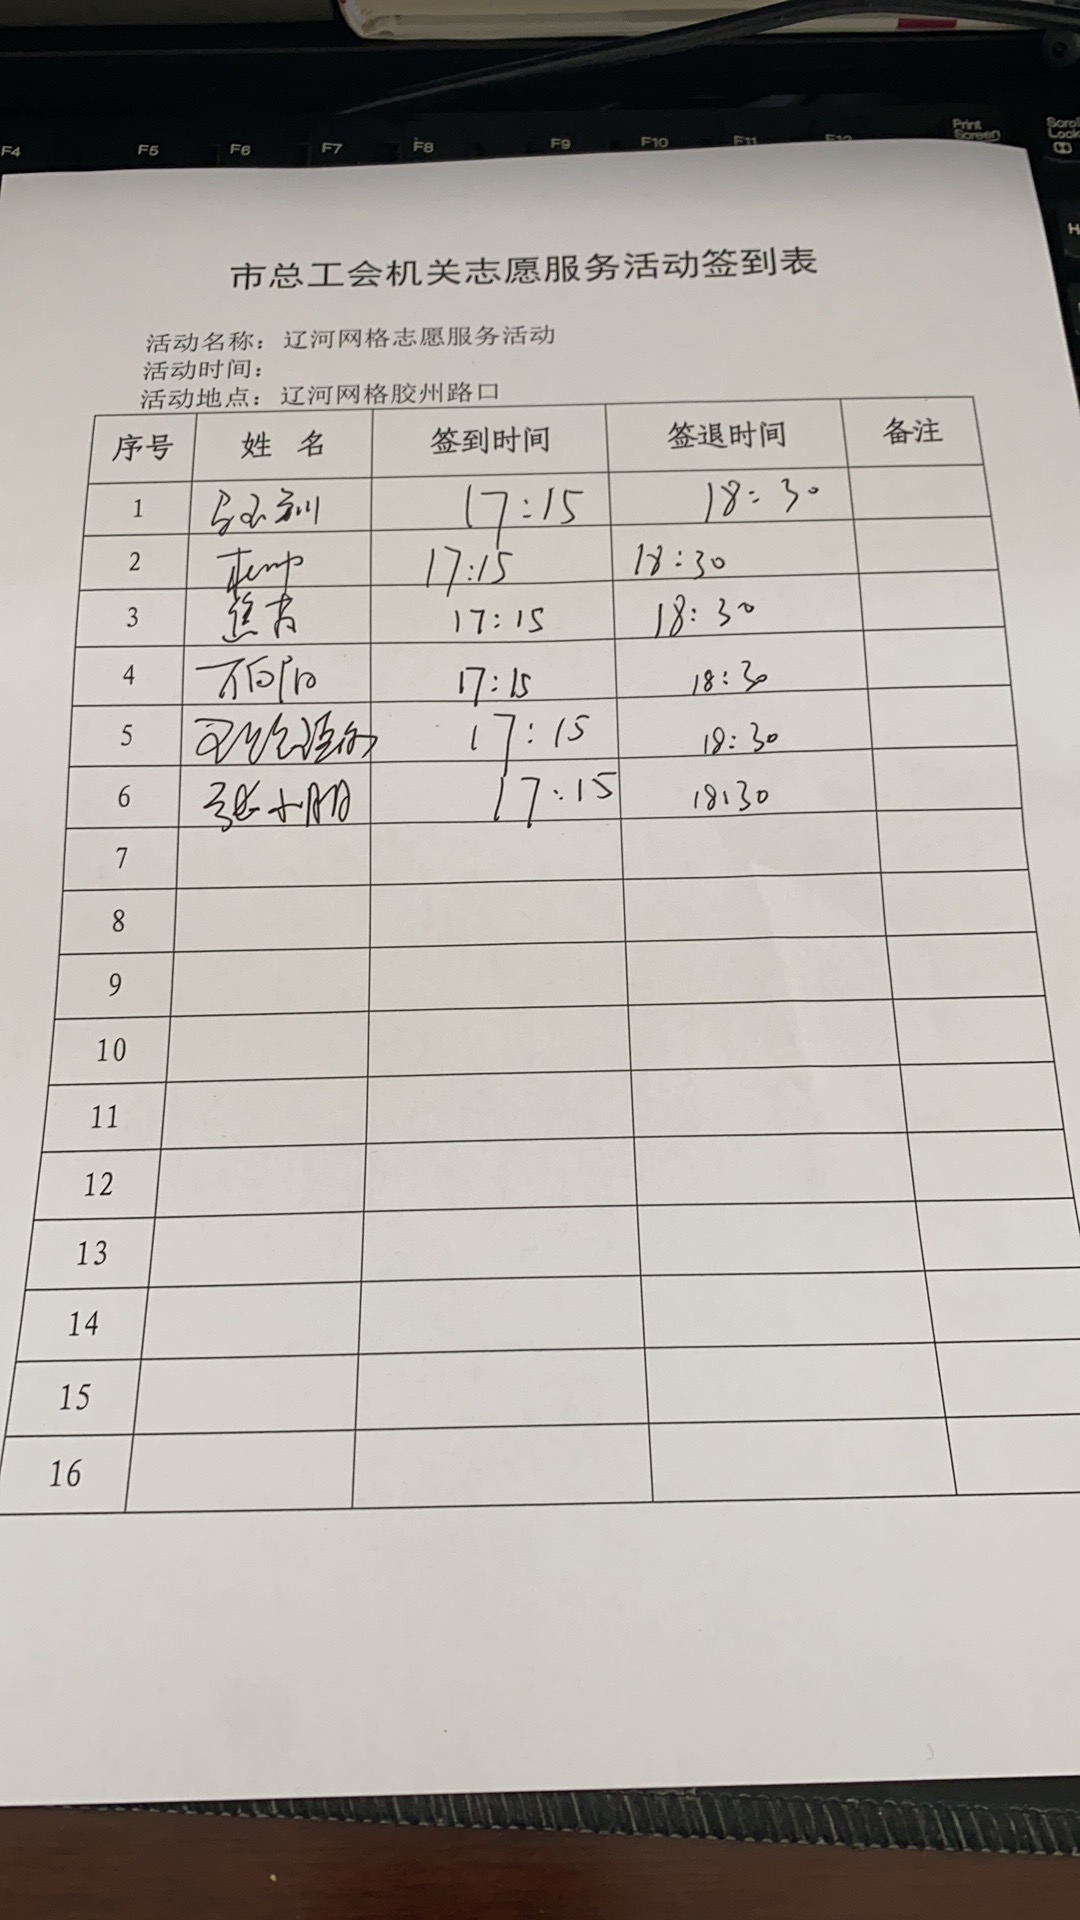 F4 F5 F6 F7 F8 F9 F10 F11 F12 Print Screen Scroll Lock
市总工会机关志愿服务活动签到表
活动名称：辽河网格志愿服务活动
活动时间：
活动地点：辽河网格胶州路口
序号 姓 名 签到时间 签退时间 备注
1 17:15 18:30
2 17:15 18:30
3 17:15 18:30
4 17:15 18:30
5 17:15 18:30
6 张小明 17:15 18:30
7
8
9
10
11
12
13
14
15
16